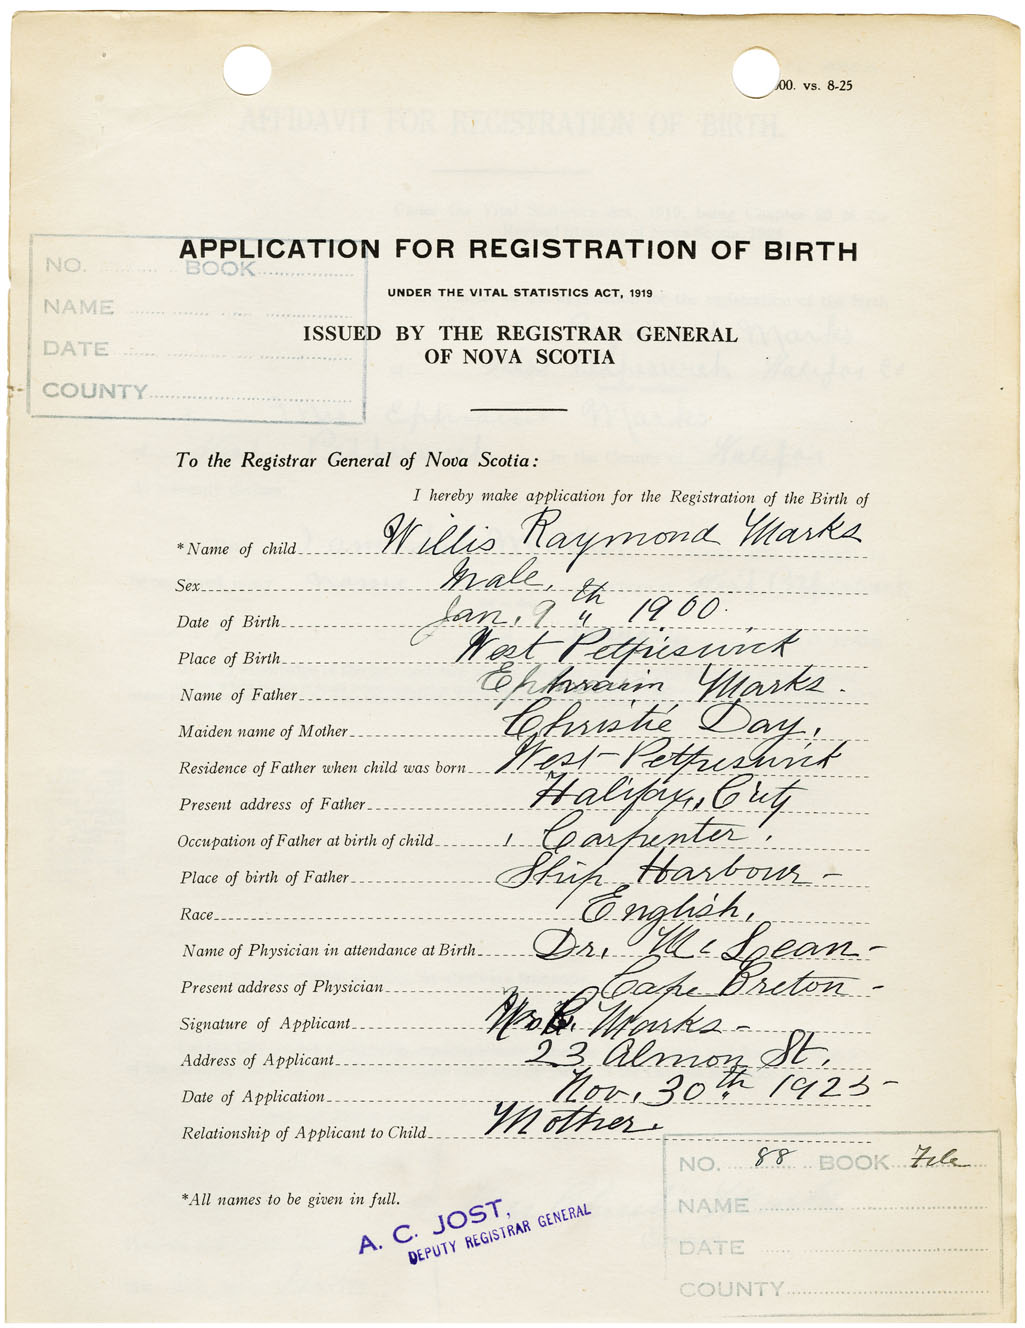 00. vs. 8-25
APPLICATION FOR REGISTRATION OF BIRTH
NO. BOOK
NAME
DATE
COUNTY
UNDER THE VITAL STATISTICS ACT, 1919
ISSUED BY THE REGISTRAR GENERAL
OF NOVA SCOTIA
To the Registrar General of Nova Scotia:
I hereby make application for the Registration of the Birth of
*Name of child Willis Raymond Marks
Sex Male,
Date of Birth Jan. 9th 1900.
Place of Birth West Petpeswick
Name of Father Ephraim Marks.
Maiden name of Mother Christie Day.
Residence of Father when child was born West Petpeswick
Present address of Father Halifax, City
Occupation of Father at birth of child Carpenter.
Place of birth of Father Ship Harbour-
Race English,
Name of Physician in attendance at Birth Dr. McLean-
Present address of Physician Cape Breton-
Signature of Applicant Marks-
Address of Applicant 23 Almon St.
Date of Application Nov. 30th 1925-
Relationship of Applicant to Child Mother.
*All names to be given in full.
A. C. JOST,
DEPUTY REGISTRAR GENERAL
NO. 88 BOOK File
NAME
DATE
COUNTY